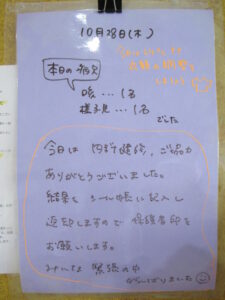 10月28日(木)
本日の病欠
咳…1名
様子見…1名
でした
今日は内科健診、ご協力
ありがとうございました。
結果をシール帳に記入し
返却しますので保護者印を
お願いします。
みんな緊張の中
がんばりました